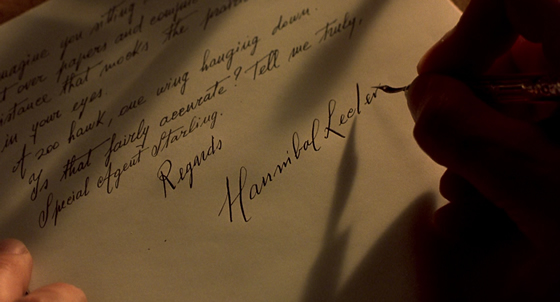 imagine you sitting
over papers and compu
istance that mocks the
in your eyes
of zoo hawk, one wing hanging down.
Is that fairly accurate? Tell me truly,
Special Agent Starling.
Regards
Hannibal Lecter